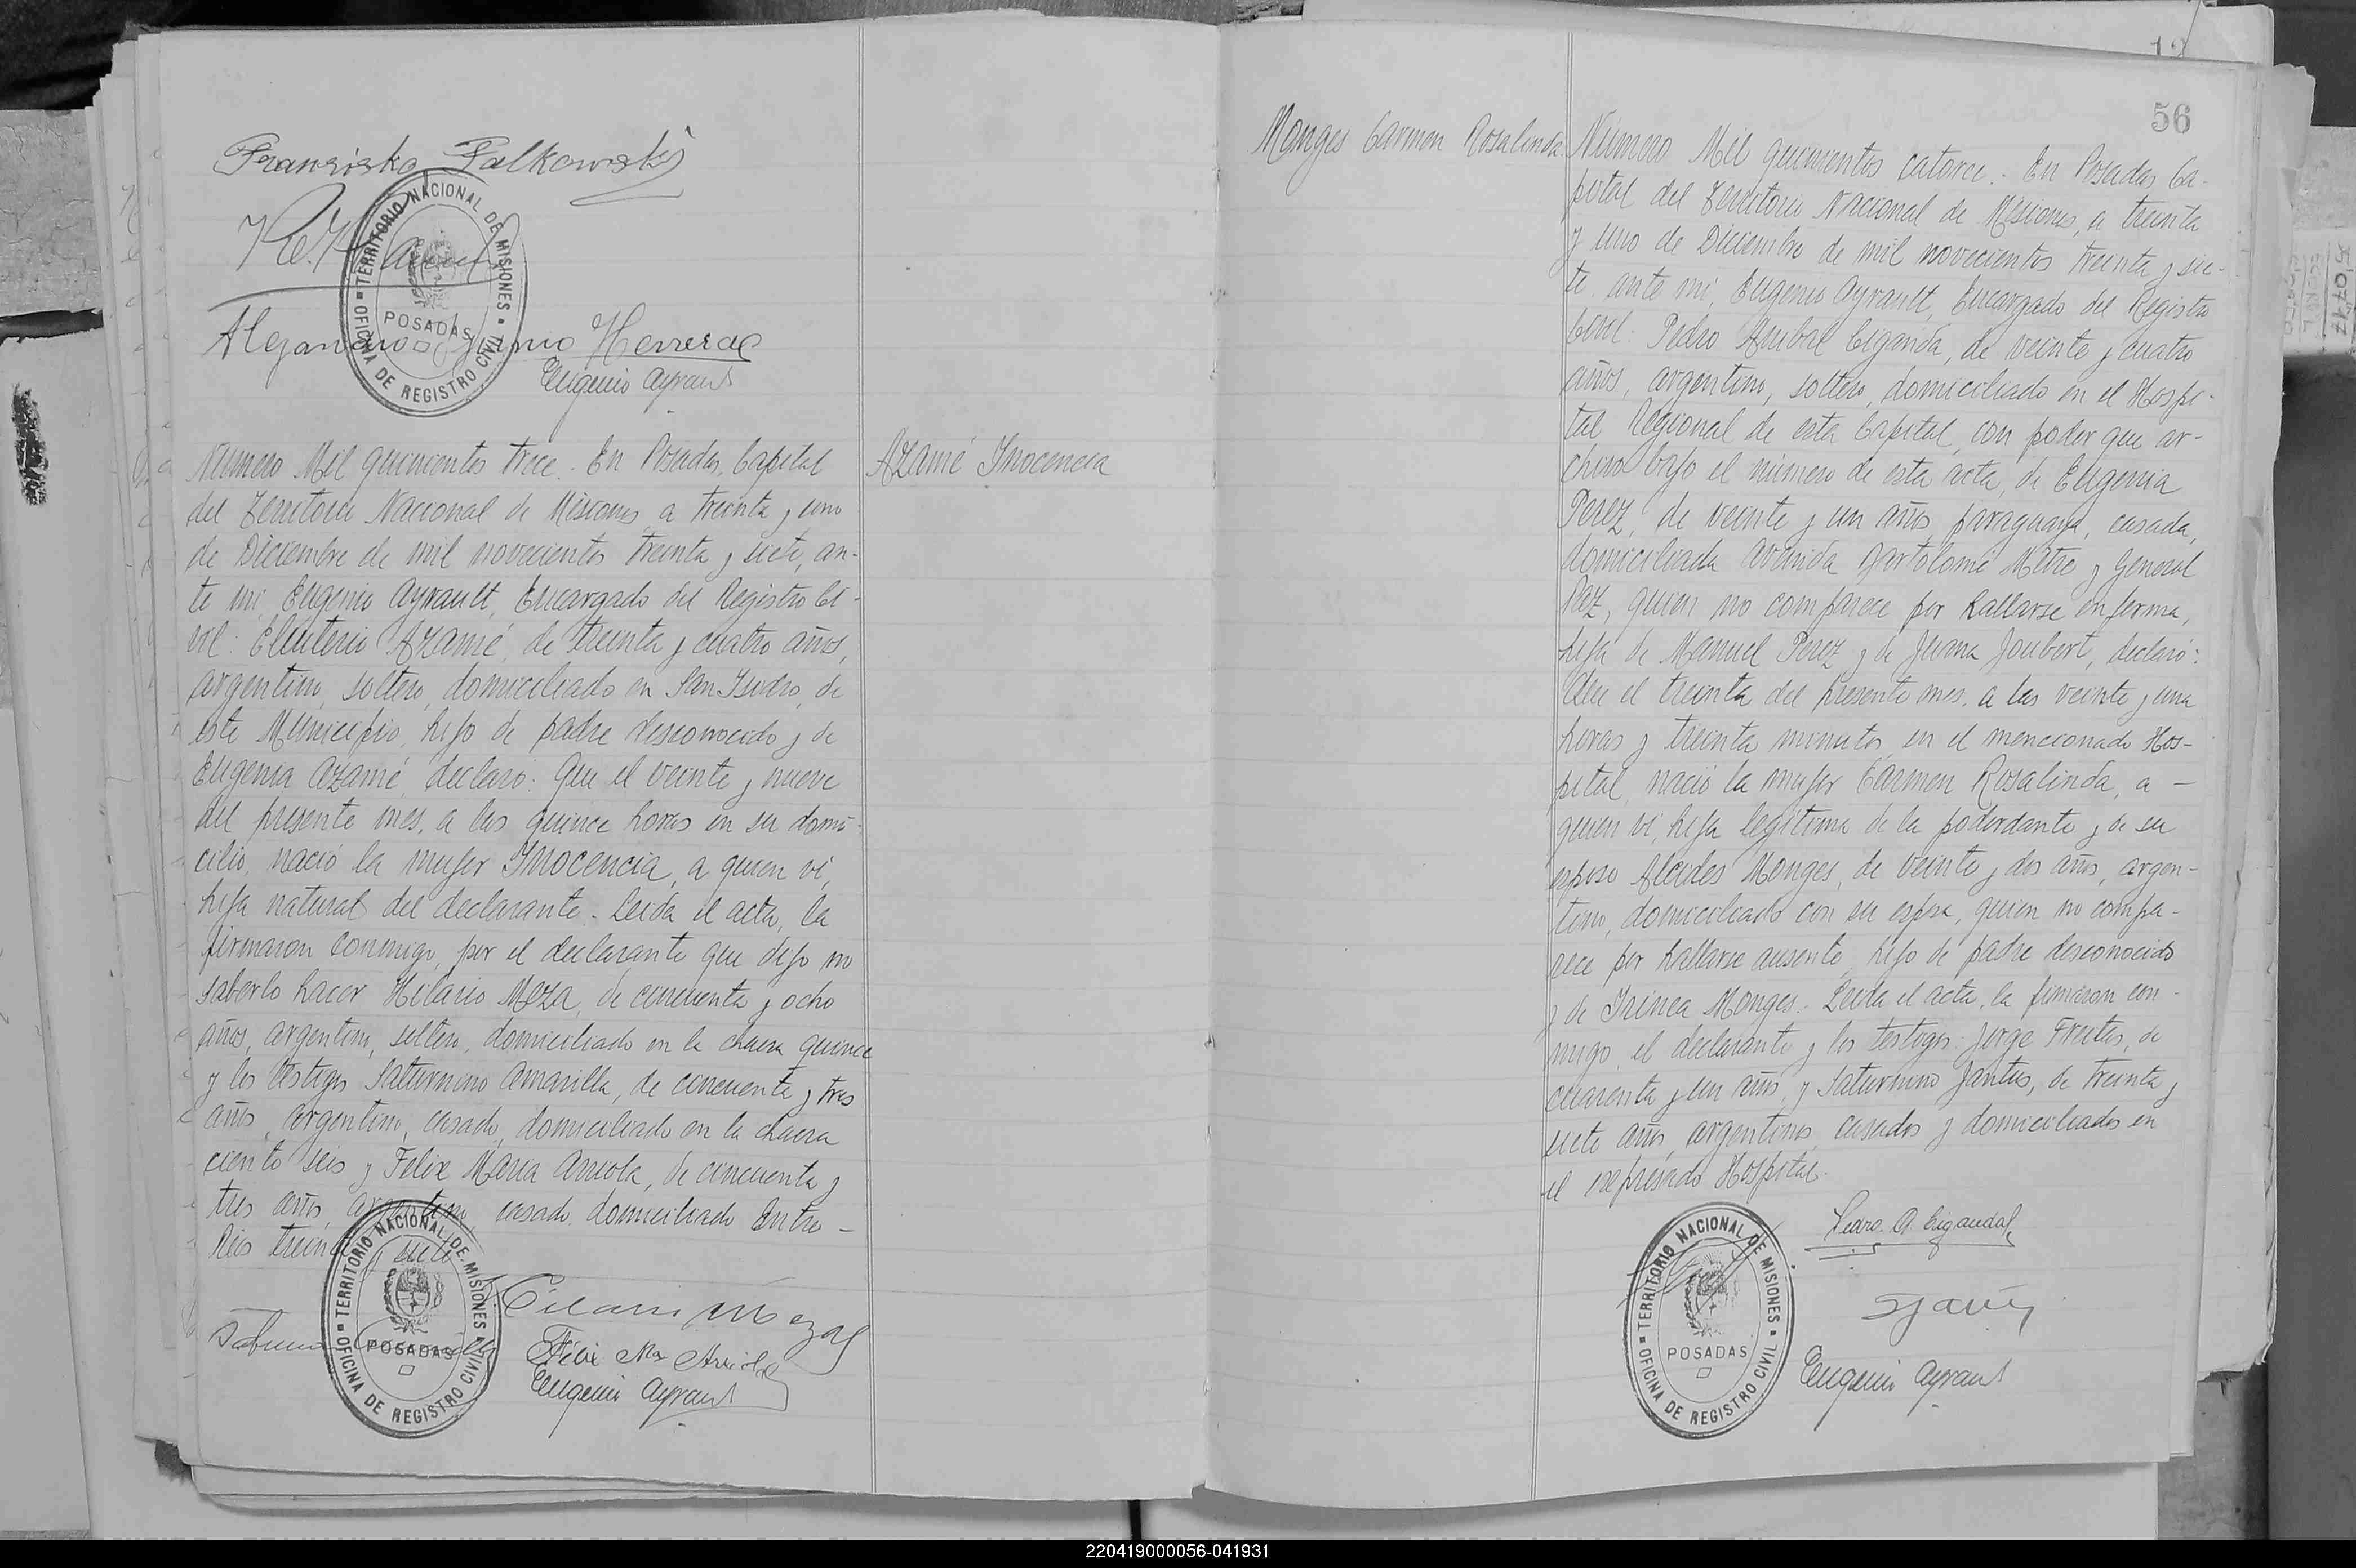 Franziska Falkowski
TERRITORIO NACIONAL DE MISIONES
POSADAS
OFICINA DE REGISTRO CIVIL
Herrera
Eugenio Ayrault
Número Mil quinientos trece. En Posadas, Capital
del Territorio Nacional de Misiones, a treinta y uno
de Diciembre de mil novecientos treinta y siete, an-
te mi, Eugenio Ayrault, Encargado del Registro Ci-
vil: Eleuterio Azamé, de treinta y cuatro años,
argentino, soltero, domiciliado en San Isidro, de
este Municipio, hijo de padre desconocido y de
Eugenia Azamé, declaró: Que el veinte y nueve
del presente mes, a las quince horas en su domi-
cilio, nació la mujer Inocencia, a quien vi,
hija natural del declarante. Leida el acta, la
firmaron conmigo, por el declarante que dijo no
saberlo hacer Hilario Meza, de cincuenta y ocho
años, argentino, soltero, domiciliado en la chacra quince
y los testigos Saturnino Amarilla, de cincuenta y tres
años, argentino, casado, domiciliado en la chacra
ciento seis y Felix Maria Arriola, de cincuenta y
tres años, argentino, casado, domiciliado Entre-
Rios treinta y siete
Hilario Meza
Felix Ma Arriola
Eugenio Ayrault
TERRITORIO NACIONAL DE MISIONES
POSADAS
OFICINA DE REGISTRO CIVIL
Azamé Inocencia
12
56
Monges Carmen Rosalinda
Número Mil quinientos catorce. En Posadas Ca-
pital del Territorio Nacional de Misiones, a treinta
y uno de Diciembre de mil novecientos treinta y sie-
te, ante mi, Eugenio Ayrault, Encargado del Registro
Civil: Pedro Anibal Ciganda, de veinte y cuatro
años, argentino, soltero, domiciliado en el Hospi-
tal Regional de esta Capital, con poder que ar-
chivo bajo el número de esta acta, de Eugenia
Perez, de veinte y un años, paraguaya, casada,
domiciliada avenida Bartolomé Mitre y General
Paz, quien no comparece por hallarse enferma,
hija de Manuel Perez y de Juana Joubert, declaró:
Que el treinta del presente mes, a las veinte y una
horas y treinta minutos en el mencionado Hos-
pital, nació la mujer Carmen Rosalinda, a -
quien vi, hija legitima de la poderdante y de su
esposo Alcides Monges, de veinte y dos años, argen-
tino, domiciliado con su esposa, quien no compa-
rece por hallarse ausente, hijo de padre desconocido
y de Irinea Monges. Leida el acta, la firmaron con-
migo, el declarante y los testigos: Jorge Freitas, de
cuarenta y un años, y Saturnino Jantus, de treinta y
siete años, argentinos, casados y domiciliados en
el expresado Hospital.
Pedro A. Ciganda
Eugenio Ayrault
TERRITORIO NACIONAL DE MISIONES
POSADAS
OFICINA DE REGISTRO CIVIL
220419000056-041931